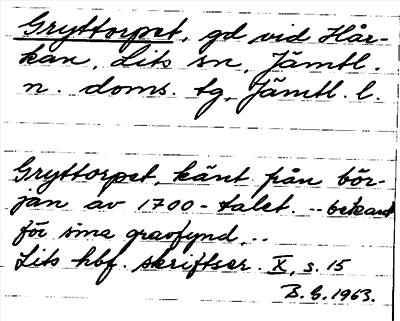 Gryttorpet, gd vid Hår-
kan, Lits sn, Jämtl.
n. doms. tg, Jämtl. l.
Gryttorpet, känt från bör-
jan av 1700-talet. -- bekant
för sina gravfynd...
Lits hbf. skriftser. X, s. 15
B. G. 1963.